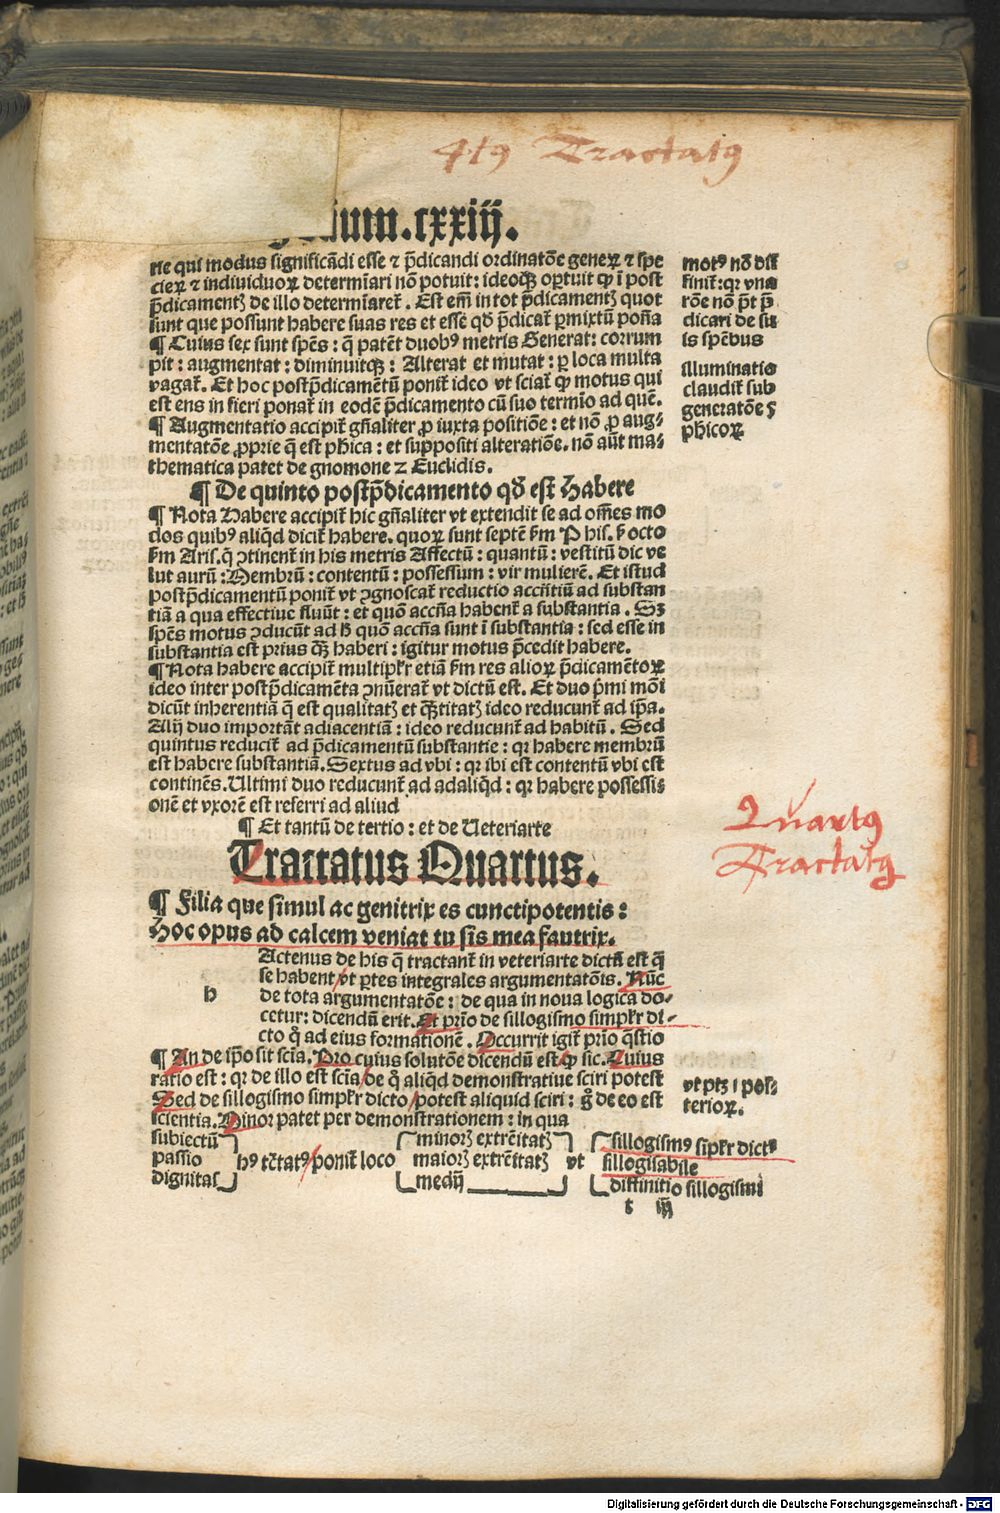 4tꝰ Tractatꝰ
lium. cxxiij.
rie qui modus significādi esse ⁊ p̄dicandi ordinatōe geneꝝ ⁊ spe
cieꝝ ⁊ indiuiduoꝝ determiari nō potuit: ideoqꝫ oꝑtuit ꝙ ī post
p̄dicamentꝭ de illo determiaret̄. Est em̄ in tot p̄dicamentꝭ quot
sunt que possunt habere suas res et esse qd̄ p̄dicat̄ ꝑmixtū poña
¶ Cuius sex sunt spēs: q̄ patēt duobꝰ metris Generat: corrum
pit: augmentat: diminuitqꝫ: Alterat et mutat: ꝑ loca multa
vagat̄. Et hoc postp̄dicamētū ponit̄ ideo vt sciat̄ ꝙ motus qui
est ens in fieri ponat̄ in eodē p̄dicamento cū suo termīo ad quē.
¶ Augmentatio accipit̄ gn̄aliter ꝓ iuxta positiōe: et nō ꝓ aug-
mentatōe ꝓprie q̄ est phica: et suppositi alteratiōe. nō aūt ma-
thematica patet de gnomone ⁊ Euclidis.
¶ De quinto postp̄dicamento qd̄ est Habere
¶ Nota Habere accipit̄ hic gn̄aliter vt extendit se ad om̄es mo
dos quibꝰ aliqd̄ dicit̄ habere. quoꝝ sunt septē ẜm P his. ẜ octo
ẜm Aris. q̄ ꝯtinent̄ in his metris Affectū: quantū: vestitū dic ve
lut aurū: Membrū: contentū: possessum: vir mulierē. Et istud
postp̄dicamentū ponit̄ vt ꝯgnoscat̄ reductio accn̄tiū ad substan
tiā a qua effectiue fluūt: et quō accn̄a habent̄ a substantia. Sꝫ
spēs motus ꝯducūt ad ħ quō accn̄a sunt ī substantia: sed esse in
substantia est prius q̄ꝫ haberi: igitur motus p̄cedit habere.
¶ Nota habere accipit̄ multipl̄r etiā ẜm res alioꝝ p̄dicamētoꝝ
ideo inter postp̄dicamēta ꝯnūerat̄ vt dictū est. Et duo p̄mi mōi
dicūt inherentiā q̄ est qualitatꝭ et q̄ꝫtitatꝭ ideo reducunt̄ ad ip̄a.
Alij duo importāt adiacentiā: ideo reducunt̄ ad habitū. Sed
quintus reducit̄ ad p̄dicamentū substantie: qꝛ habere membrū
est habere substantiā. Sextus ad vbi: qꝛ ibi est contentū vbi est
continēs. Ultimi duo reducunt̄ ad adaliqd̄: qꝛ habere possessi-
onē et vxorē est referri ad aliud
¶ Et tantū de tertio: et de Ueteriarte
Tractatus Quartus.
¶ Filia que simul ac genitrix es cunctipotentis:
Hoc opus ad calcem veniat tu sis mea fautrix.
h
Actenus de his q̄ tractant̄ in veteriarte dictū est q̄
se habent vt ꝑtes integrales argumentatōis. Nūc
de tota argumentatōe: de qua in noua logica do-
cetur: dicendū erit. Et prīo de sillogismo simpl̄r di-
cto q̊ ad eius formationē. Occurrit igit̄ prīo q̄stio
¶ An de ip̄o sit scīa. Pro cuius solutōe dicendū est ꝙ sic. Cuius
ratio est: qꝛ de illo est scīa de q̊ aliqd̄ demonstratiue sciri potest
Sed de sillogismo simpl̄r dicto potest aliquid sciri: g̊ de eo est
scientia. Minor patet per demonstrationem: in qua
subiectū
passio
dignitas
hꝰ tc̄tatꝰ ponit̄ loco
minorꝭ extrēitatꝭ
maiorꝭ extrēitatꝭ
medij
vt
sillogismꝰ sipl̄r dictꝰ
sillogisabile
diffinitio sillogismi
t iij
motꝰ nō dif
finit̄: qꝛ vna
rōne nō p̄t p̄
dicari de su
is spēbus
illuminatio
claudit̄ sub
generatōe ꝭ
phicoꝝ
Quartꝰ
Tractatꝰ
vt ptꝫ ı pos-
terioꝝ.
Digitalisierung gefördert durch die Deutsche Forschungsgemeinschaft - DFG